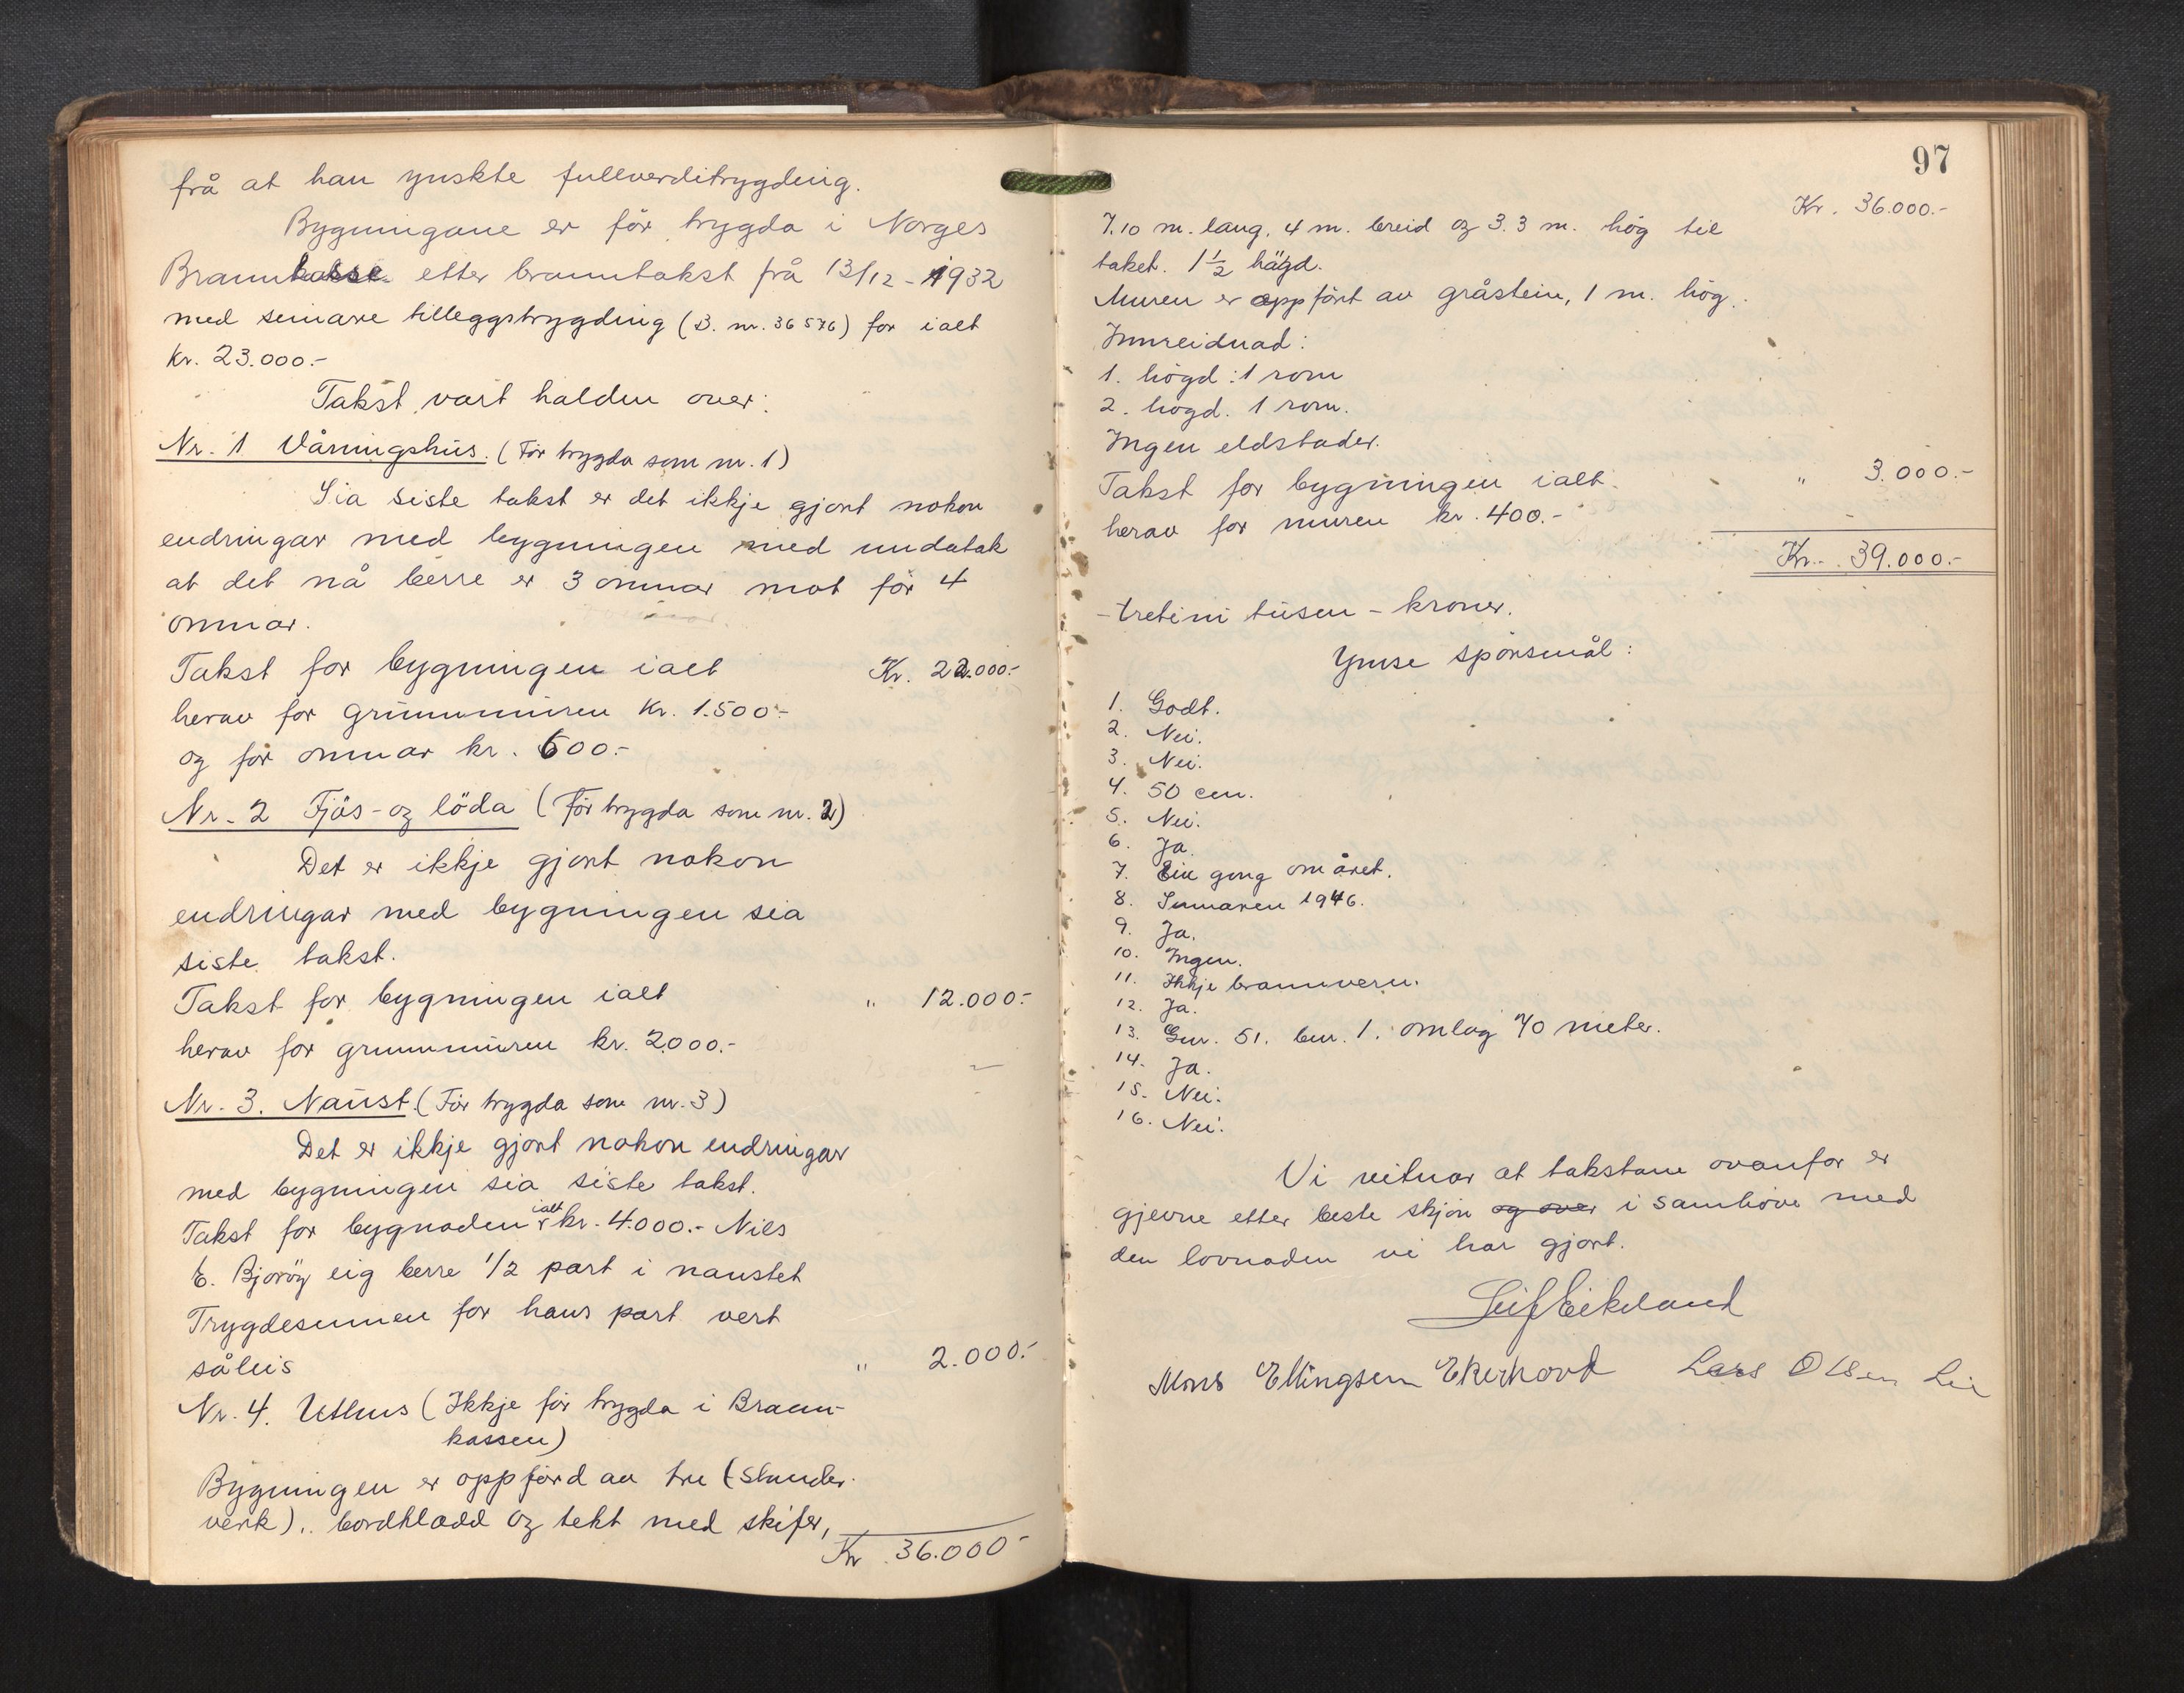 frå at han ynskte fullverditrygding.
Bygningane er för trygda i Norges
Brannkasse etter branntakst frå 13/12 - 1932
med seinare tilleggstrygding (B. nr. 36576) for ialt
kr. 23.000.-
Takst vart halden over:
Nr. 1 Våningshus. (För trygda som nr. 1)
Sia siste takst er det ikkje gjort nokon
endringar med bygningen med undatak
at det nå berre er 3 omnar mot för 4
omnar.
Takst for bygningen ialt Kr. 22.000.-
herav for grunnmuren Kr. 1.500.-
og for omnar kr. 600.-
Nr. 2 Fjös- og löda (För trygda som nr. 2)
Det er ikkje gjort nokon
endringar med bygningen sia
siste takst.
Takst for bygningen ialt " 12.000.-
herav for grunnmuren kr. 2000.-
Nr. 3. Naust. (För trygda som nr. 3)
Det er ikkje gjort nokon endringar
med bygningen sia siste takst.
Takst for bygnaden ialt kr. 4.000.- Nils
E. Bjoröy eig berre 1/2 part i naustet
Trygdesummen for hans part vert
såleis " 2.000.-
Nr. 4. Uthus (Ikkje för trygda i Brann-
kassen)
Bygningen er oppförd av tre (stender-
verk), bordkledd og tekt med skifer,
Kr. 36.000-
97
Kr. 36.000.-
7.10 m. lang, 4 m. breid og 3.3 m. hög til
taket. 1 1/2 högd.
Muren er oppfört av gråstein, 1 m. hög.
Innreidnad:
1. högd: 1 rom
2. högd. 1 rom.
Ingen eldstader.
Takst for bygningen ialt " 3.000.-
herav for muren kr. 400.-
Kr. 39.000.-
- tretini tusen - kroner.
Ymse spörsmål:
1. Godt.
2. Nei.
3. Nei.
4. 50 cm.
5. Nei.
6. Ja.
7. Ein gong om året.
8. Sumaren 1946.
9. Ja.
10. Ingen.
11. Ikkje brannvern.
12. Ja.
13. Gnr. 51. bnr. 1. omlag 70 meter.
14. Ja.
15. Nei.
16. Nei.
Vi vitnar at takstane ovanfor er
gjevne etter beste skjön og over i samhöve med
den lovnaden vi har gjort.
Leif Eikeland
Mons Ellingsen Ekerhovd Lars Olsen Lie